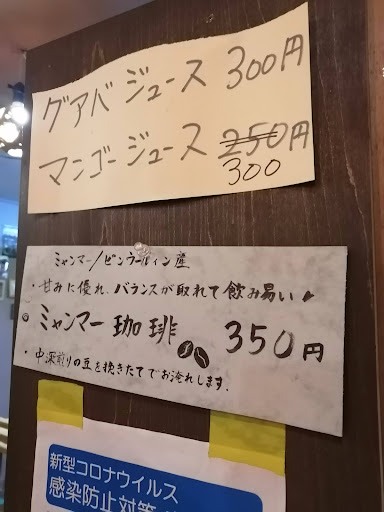 グアバジュース 300円
マンゴージュース 250円
300
ミャンマー/ピンウールィン産
・甘みに優れ、バランスが取れて飲み易い
◎ミャンマー珈琲 350円
・中深煎りの豆を挽きたてでお淹れします.
新型コロナウイルス
感染防止対策